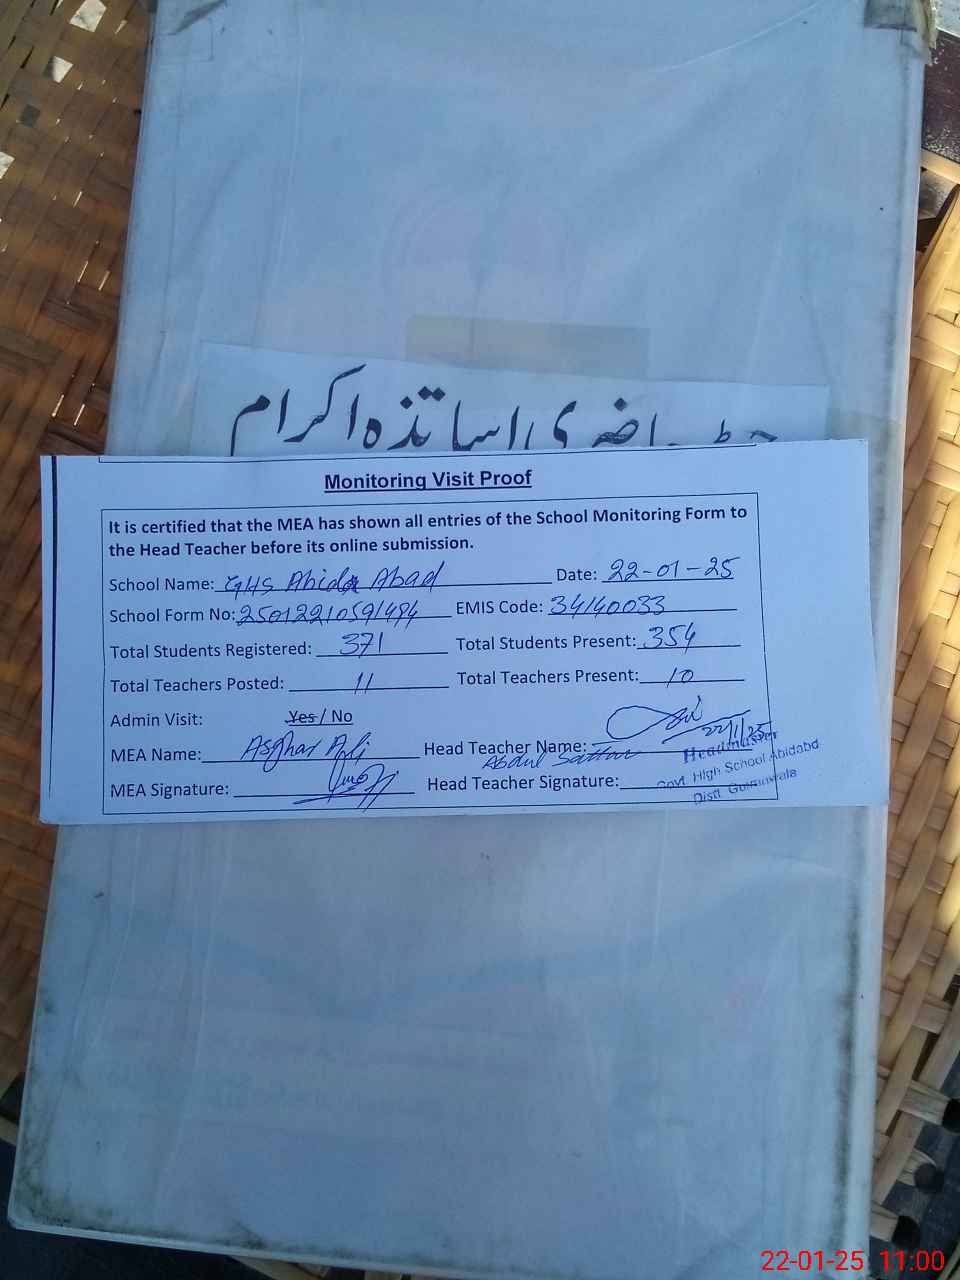 رجسٹر حاضری اساتذہ اکرام
Monitoring Visit Proof
It is certified that the MEA has shown all entries of the School Monitoring Form to
the Head Teacher before its online submission.
School Name: GHS Abida Abad Date: 22-01-25
School Form No: 25012210591494 EMIS Code: 34140033
Total Students Registered: 371 Total Students Present: 354
Total Teachers Posted: 11 Total Teachers Present: 10
Admin Visit: Yes / No
22/1/25
MEA Name: Asghar Ali Head Teacher Name: Abdul Sattar
Headmaster
Govt. High School Abidabd
MEA Signature: Head Teacher Signature:
Distt. Gujranwala
22-01-25 11:00